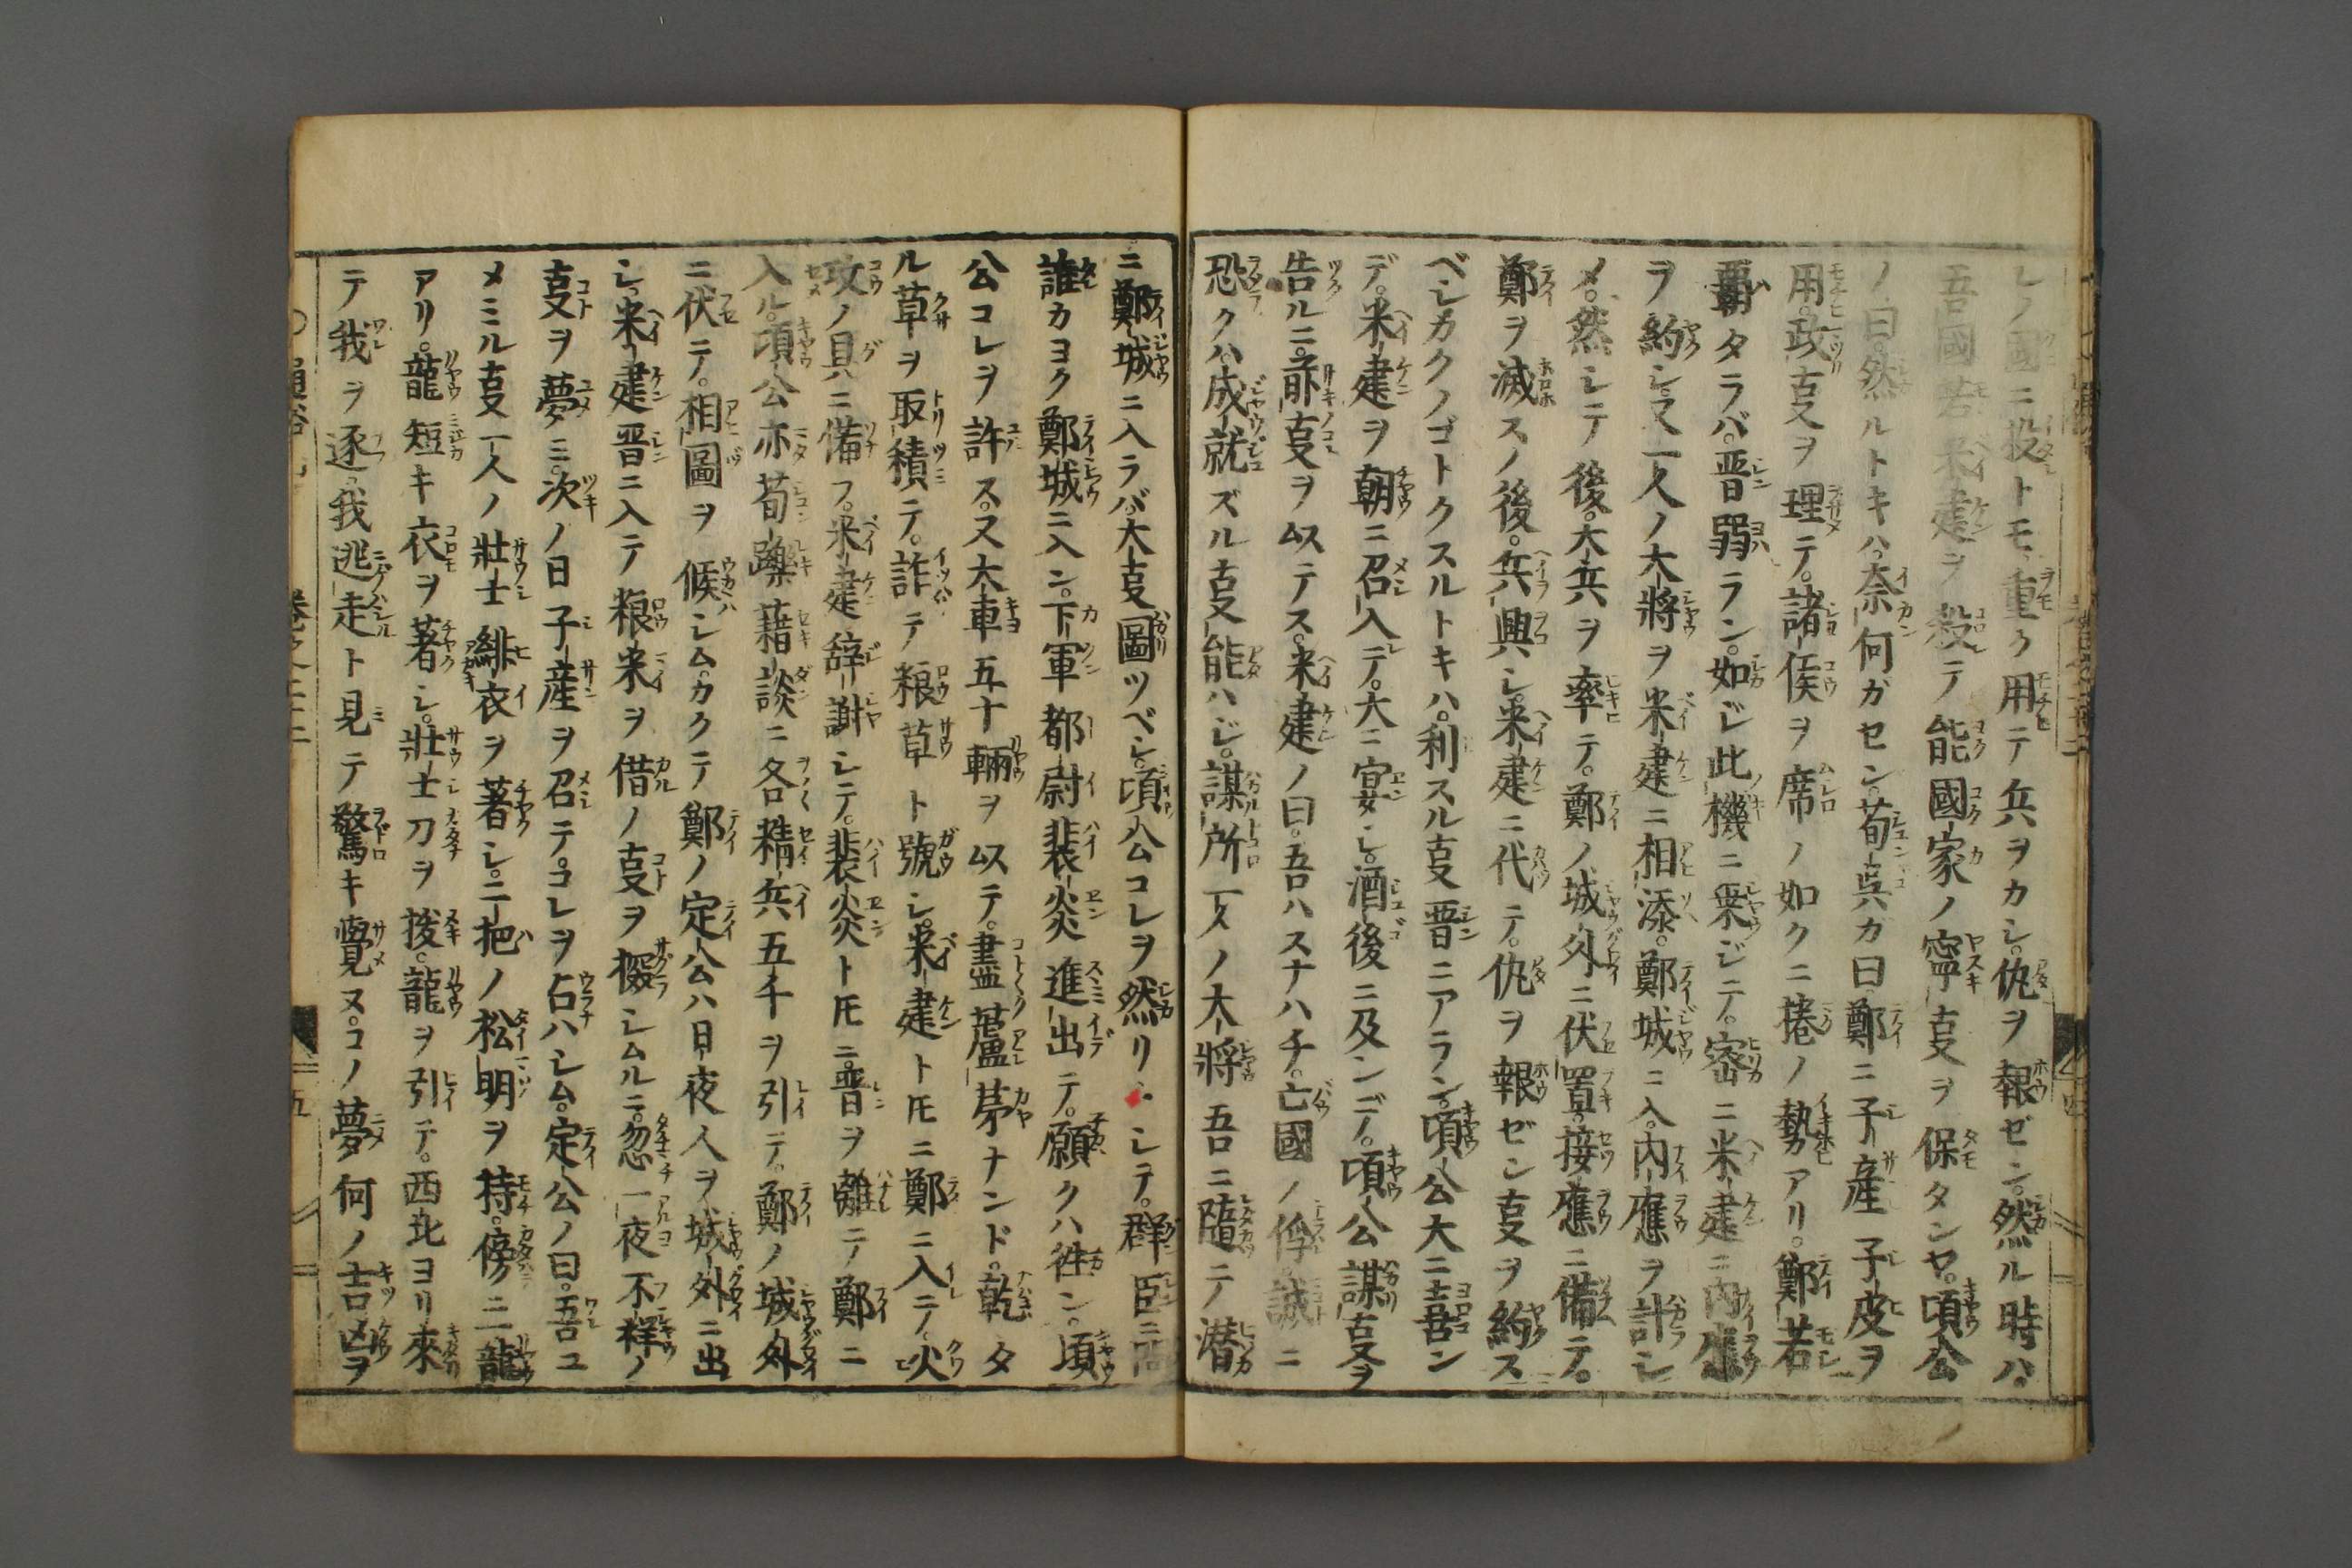 レノ國ニ投トモ。重ク用テ兵ヲカシ。仇ヲ報ゼン。然ル時ハ。
吾國若米建ヲ殺テ能國家ノ寧㕝ヲ保タンヤ。頃公
ノ曰。然ルトキハ。奈何ガセン。荀呉カ曰鄭ニ子産子皮ヲ
用。政㕝ヲ理テ。諸侯ヲ席ノ如クニ捲ノ勢アリ。鄭若
覇タラバ。晋弱ラン。如ジ此機ニ乗ジテ。密ニ米建ニ內應
ヲ約シ。又一人ノ大將ヲ米建ニ相添。鄭城ニ入。內應ヲ計シ
メ。然シテ後。大兵ヲ率テ。鄭ノ城外ニ伏置。接應ニ備テ。
鄭ヲ滅スノ後。兵興シ。米建ニ代テ。仇ヲ報ゼン㕝ヲ約ス
ベシカクノゴトクスルトキハ。利スル㕝晋ニアラン。頃公大ニ喜ン
デ。米建ヲ朝ニ召入テ。大ニ宴シ。酒後ニ及ンデ。頃公謀㕝ヲ
告ルニ。前㕝ヲ以テス。米建ノ曰。吾ハスナハチ。亡國ノ俘誠ニ
恐クハ。成就ズル㕝能ハジ。謀所一人ノ大將吾ニ隨テ潜
ニ鄭城ニ入ラバ。大㕝圖ツベシ。頃公コレヲ然リ・シテ。群臣ニ問
誰カヨク鄭城ニ入ン。下軍都尉裴炎進出テ。願クハ徃ン。頃
公コレヲ許ス。又大車五十輛ヲ以テ。盡蘆茅ナンド。乾タ
ル草ヲ取積テ。詐テ粮草ト號シ。米建ト𪜈ニ鄭ニ入テ。火
攻ノ具ニ備フ。米建辞謝シテ。裴炎ト𪜈ニ。晋ヲ離テ鄭ニ
入ル。頃公亦荀躒藉談ニ各精兵五千ヲ引テ。鄭ノ城外
ニ伏テ。相圖ヲ候シム。カクテ鄭ノ定公ハ日夜人ヲ城外ニ出
シ。米建晋ニ入テ粮米ヲ借ノ㕝ヲ探シムルニ。忽一夜不祥ノ
㕝ヲ夢ミ。次ノ日子産ヲ召テ。コレヲ占ハシム。定公ノ曰。吾ユ
メミル㕝一人ノ壯士緋衣ヲ著シ。二把ノ松明ヲ持。傍ニ一龍
アリ。龍短キ衣ヲ著シ。壯士刀ヲ拔。龍ヲ引テ。西北ヨリ來
テ我ヲ逐。我迯走ト見テ驚キ覺ヌ。コノ夢何ノ吉凶ヲ